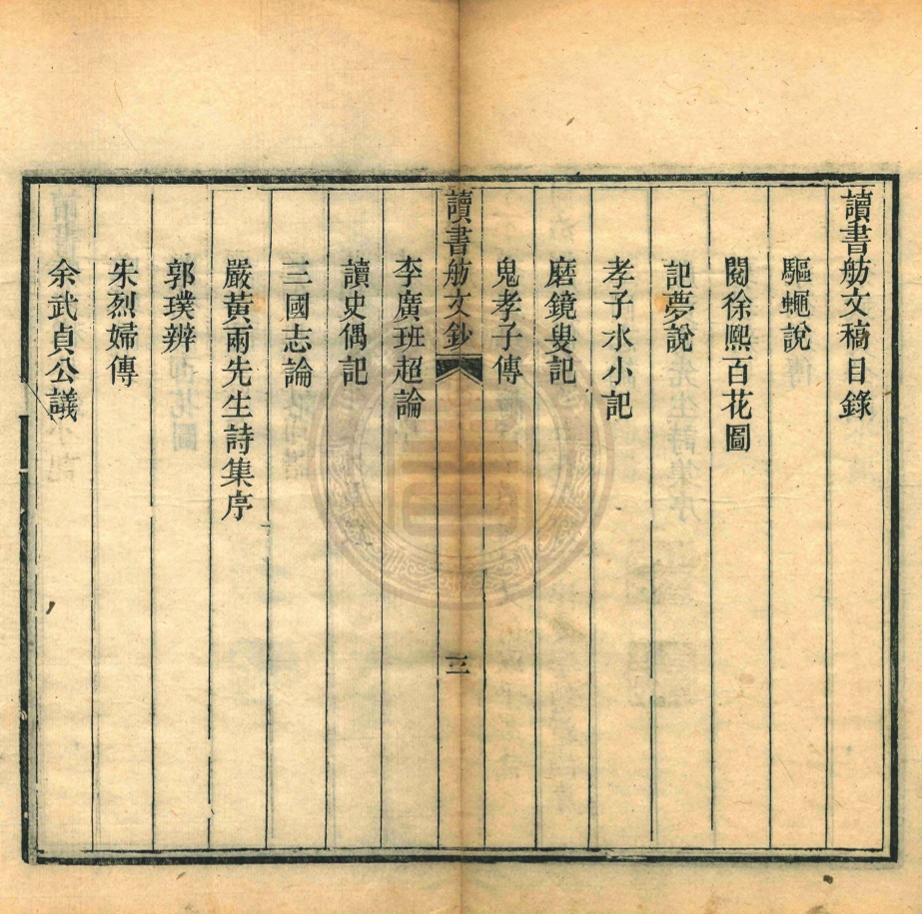 讀書舫文稿目錄
驅蠅說
閱徐熙百花圖
記夢說
孝子水小記
磨鏡叟記
鬼孝子傳
讀書舫文鈔
三
李廣班超論
讀史偶記
三國志論
嚴黃兩先生詩集序
郭璞辨
朱烈婦傳
余武貞公議